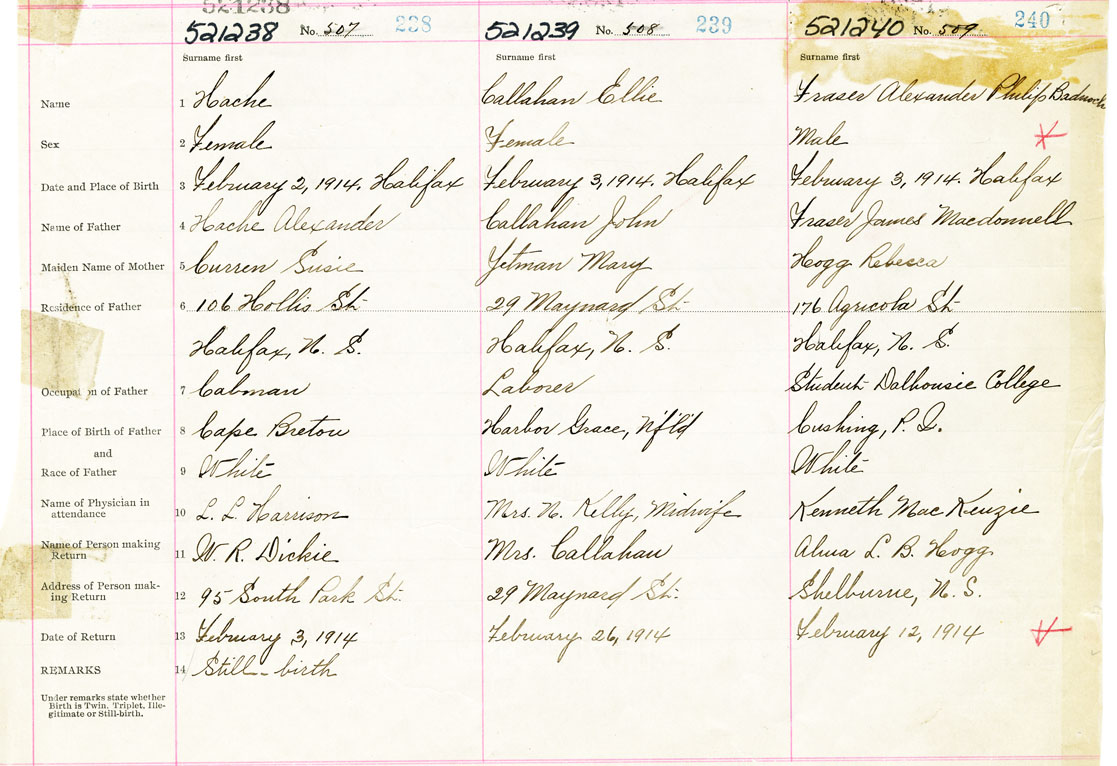 521238
521238 No. 507 238 521239 No. 508 239 521240 No. 509 240
Surname first Surname first Surname first
Name 1 Hache Callahan Ellie Fraser Alexander Philip Badnoch
Sex 2 Female Female Male
Date and Place of Birth 3 February 2, 1914. Halifax February 3, 1914. Halifax February 3, 1914. Halifax
Name of Father 4 Hache Alexander Callahan John Fraser James Macdonnell
Maiden Name of Mother 5 Curren Susie Yetman Mary Hogg Rebecca
Residence of Father 6 106 Hollis St. 29 Maynard St. 176 Agricola St.
Halifax, N. S. Halifax, N. S. Halifax, N. S.
Occupation of Father 7 Cabman Laborer Student Dalhousie College
Place of Birth of Father 8 Cape Breton Harbor Grace, Nf'ld Cushing, P. Q.
and
Race of Father 9 White White White
Name of Physician in
attendance 10 L. L. Harrison Mrs. N. Kelly, Midwife Kenneth MacKenzie
Name of Person making
Return 11 W. R. Dickie Mrs. Callahan Alma L. B. Hogg
Address of Person mak-
ing Return 12 95 South Park St. 29 Maynard St. Shelburne, N. S.
Date of Return 13 February 3, 1914 February 26, 1914 February 12, 1914
REMARKS 14 Still-birth
Under remarks state whether
Birth is Twin, Triplet, Ille-
gitimate or Still-birth.